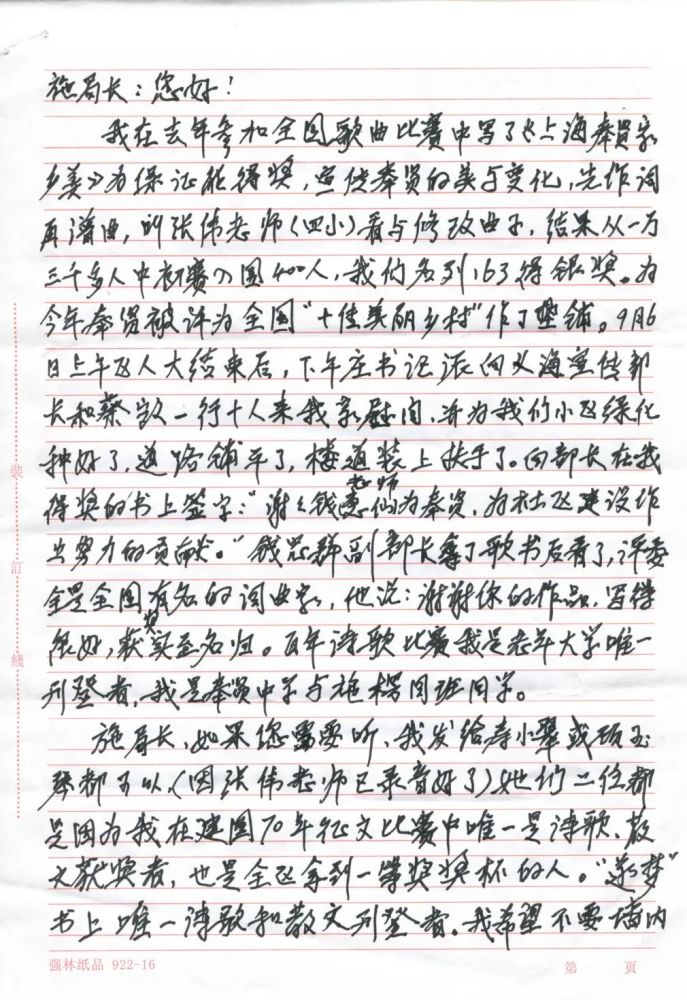 施局长：您好！
我在去年参加全国歌曲比赛中写了《上海奉贤家
乡美》为保证能得奖，宣传奉贤的美与变化，先作词
再谱曲，叫张伟老师（四小）看与修改曲子，结果从一万
三千多人中初赛入围400人，我们名列163得银奖。为
今年奉贤被评为全国“十佳美丽乡村”作了垫铺。9月6
日上午区人大结束后，下午庄书记派向义海宣传部
长和蔡 一行十人来我家慰问，并为我们小区绿化
种好了，道路铺平了，楼道装上扶手了。向部长在我
得奖的书上签字：“谢谢钱惠仙老师为奉贤，为社区建设作
出努力的贡献。”钱忠群副部长拿了歌书后看了，评委
全是全国有名的词曲家，他说：谢谢你的作品，写得
很好，获奖实至名归。百年诗歌比赛我是老年大学唯一
刊登者，我是奉贤中学与施 同班同学。
施局长，如果您需要听，我发给寿小翠或顾玉
都可以，（因张伟老师已录音好了）她们二位都
是因为我在建国70年征文比赛中唯一是诗歌、散
文获奖者，也是全区拿到一等奖奖杯的人。“逐梦”
书上唯一诗歌和散文刊登者。我希望不要墙内
装
订
线
强林纸品 922-16
第 页